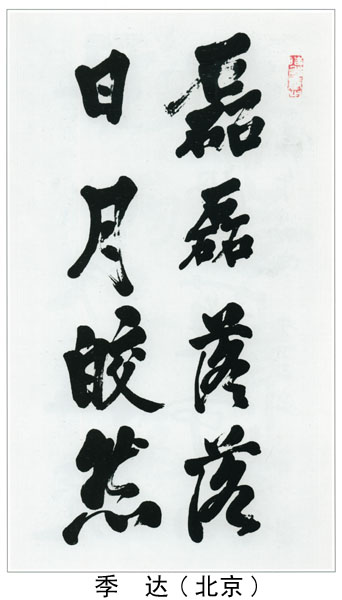 磊磊落落
日月皎然
季 达（北京）